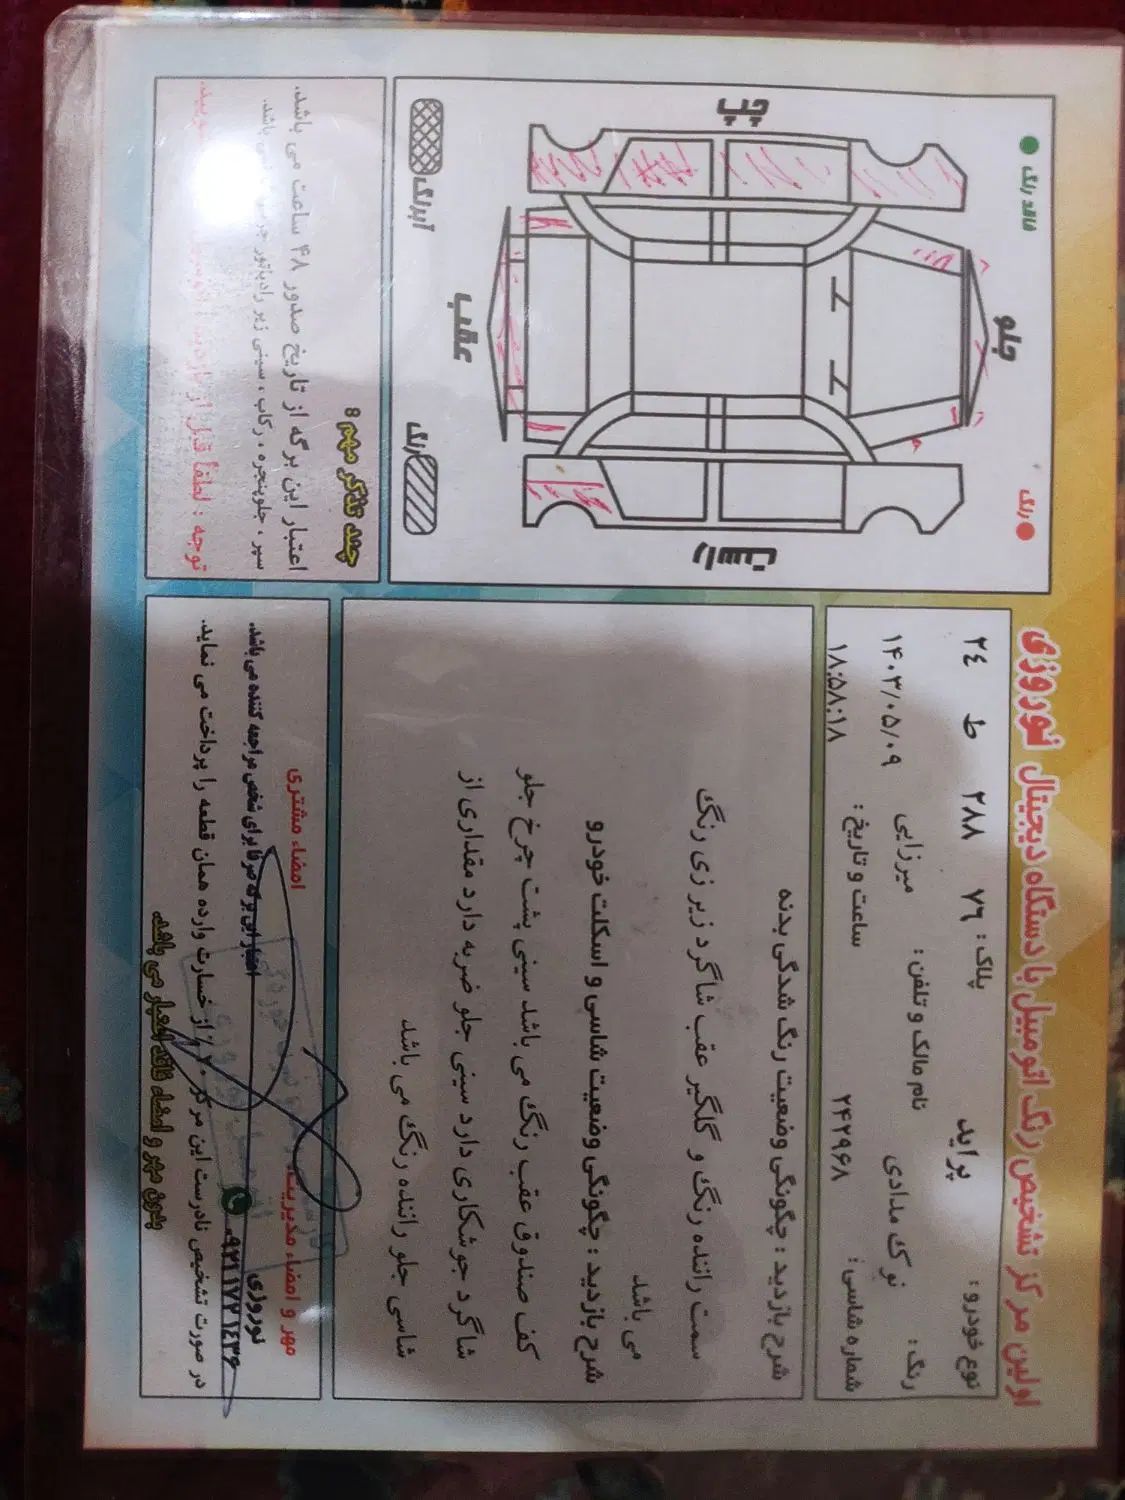 اولین مرکز تشخیص رنگ اتومبیل با دستگاه دیجیتال نوروزی
نوع خودرو : پراید پلاک : ۷۶ ۲۸۸ ط ۲٤
رنگ : نوک مدادی نام مالک و تلفن : میرزایی ۱۴۰۳/۰۵/۰۹
شماره شاسی : ۲۴۲۹۶۸ ساعت و تاریخ : ۱۸:۵۸:۱۸
شرح بازدید : چگونگی وضعیت رنگ شدگی بدنه
سمت راننده رنگ و گلگیر عقب شاگرد زیر زی رنگ
می باشد
شرح بازدید : چگونگی وضعیت شاسی و اسکلت خودرو
کف صندوق عقب رنگ می باشد سینی پشت چرخ جلو
شاگرد جوشکاری دارد سینی جلو ضربه دارد مقداری از
شاسی جلو راننده رنگ می باشد
مهر و امضاء مدیریت امضاء مشتری
نوروزی
۰۹۲۱۱۷۲۱۴۳۶
اعتبار این برگه صرفا برای شخص مراجعه کننده می باشد.
در صورت تشخیص نادرست این مرکز ۷۰٪ از خسارت وارده همان قطعه را پرداخت می نماید.
بدون مهر و امضاء فاقد اعتبار می باشد
رنگ
فاقد رنگ
جلو
راست
چپ
عقب
رنگ
آبرنگ
چند تذکر مهم 8
اعتبار این برگه از تاریخ صدور ۴۸ ساعت می باشد.
سپر ، جلوپنجره ، رکاب ، سینی زیر رادیاتور
توجه : لطفاً قبل از